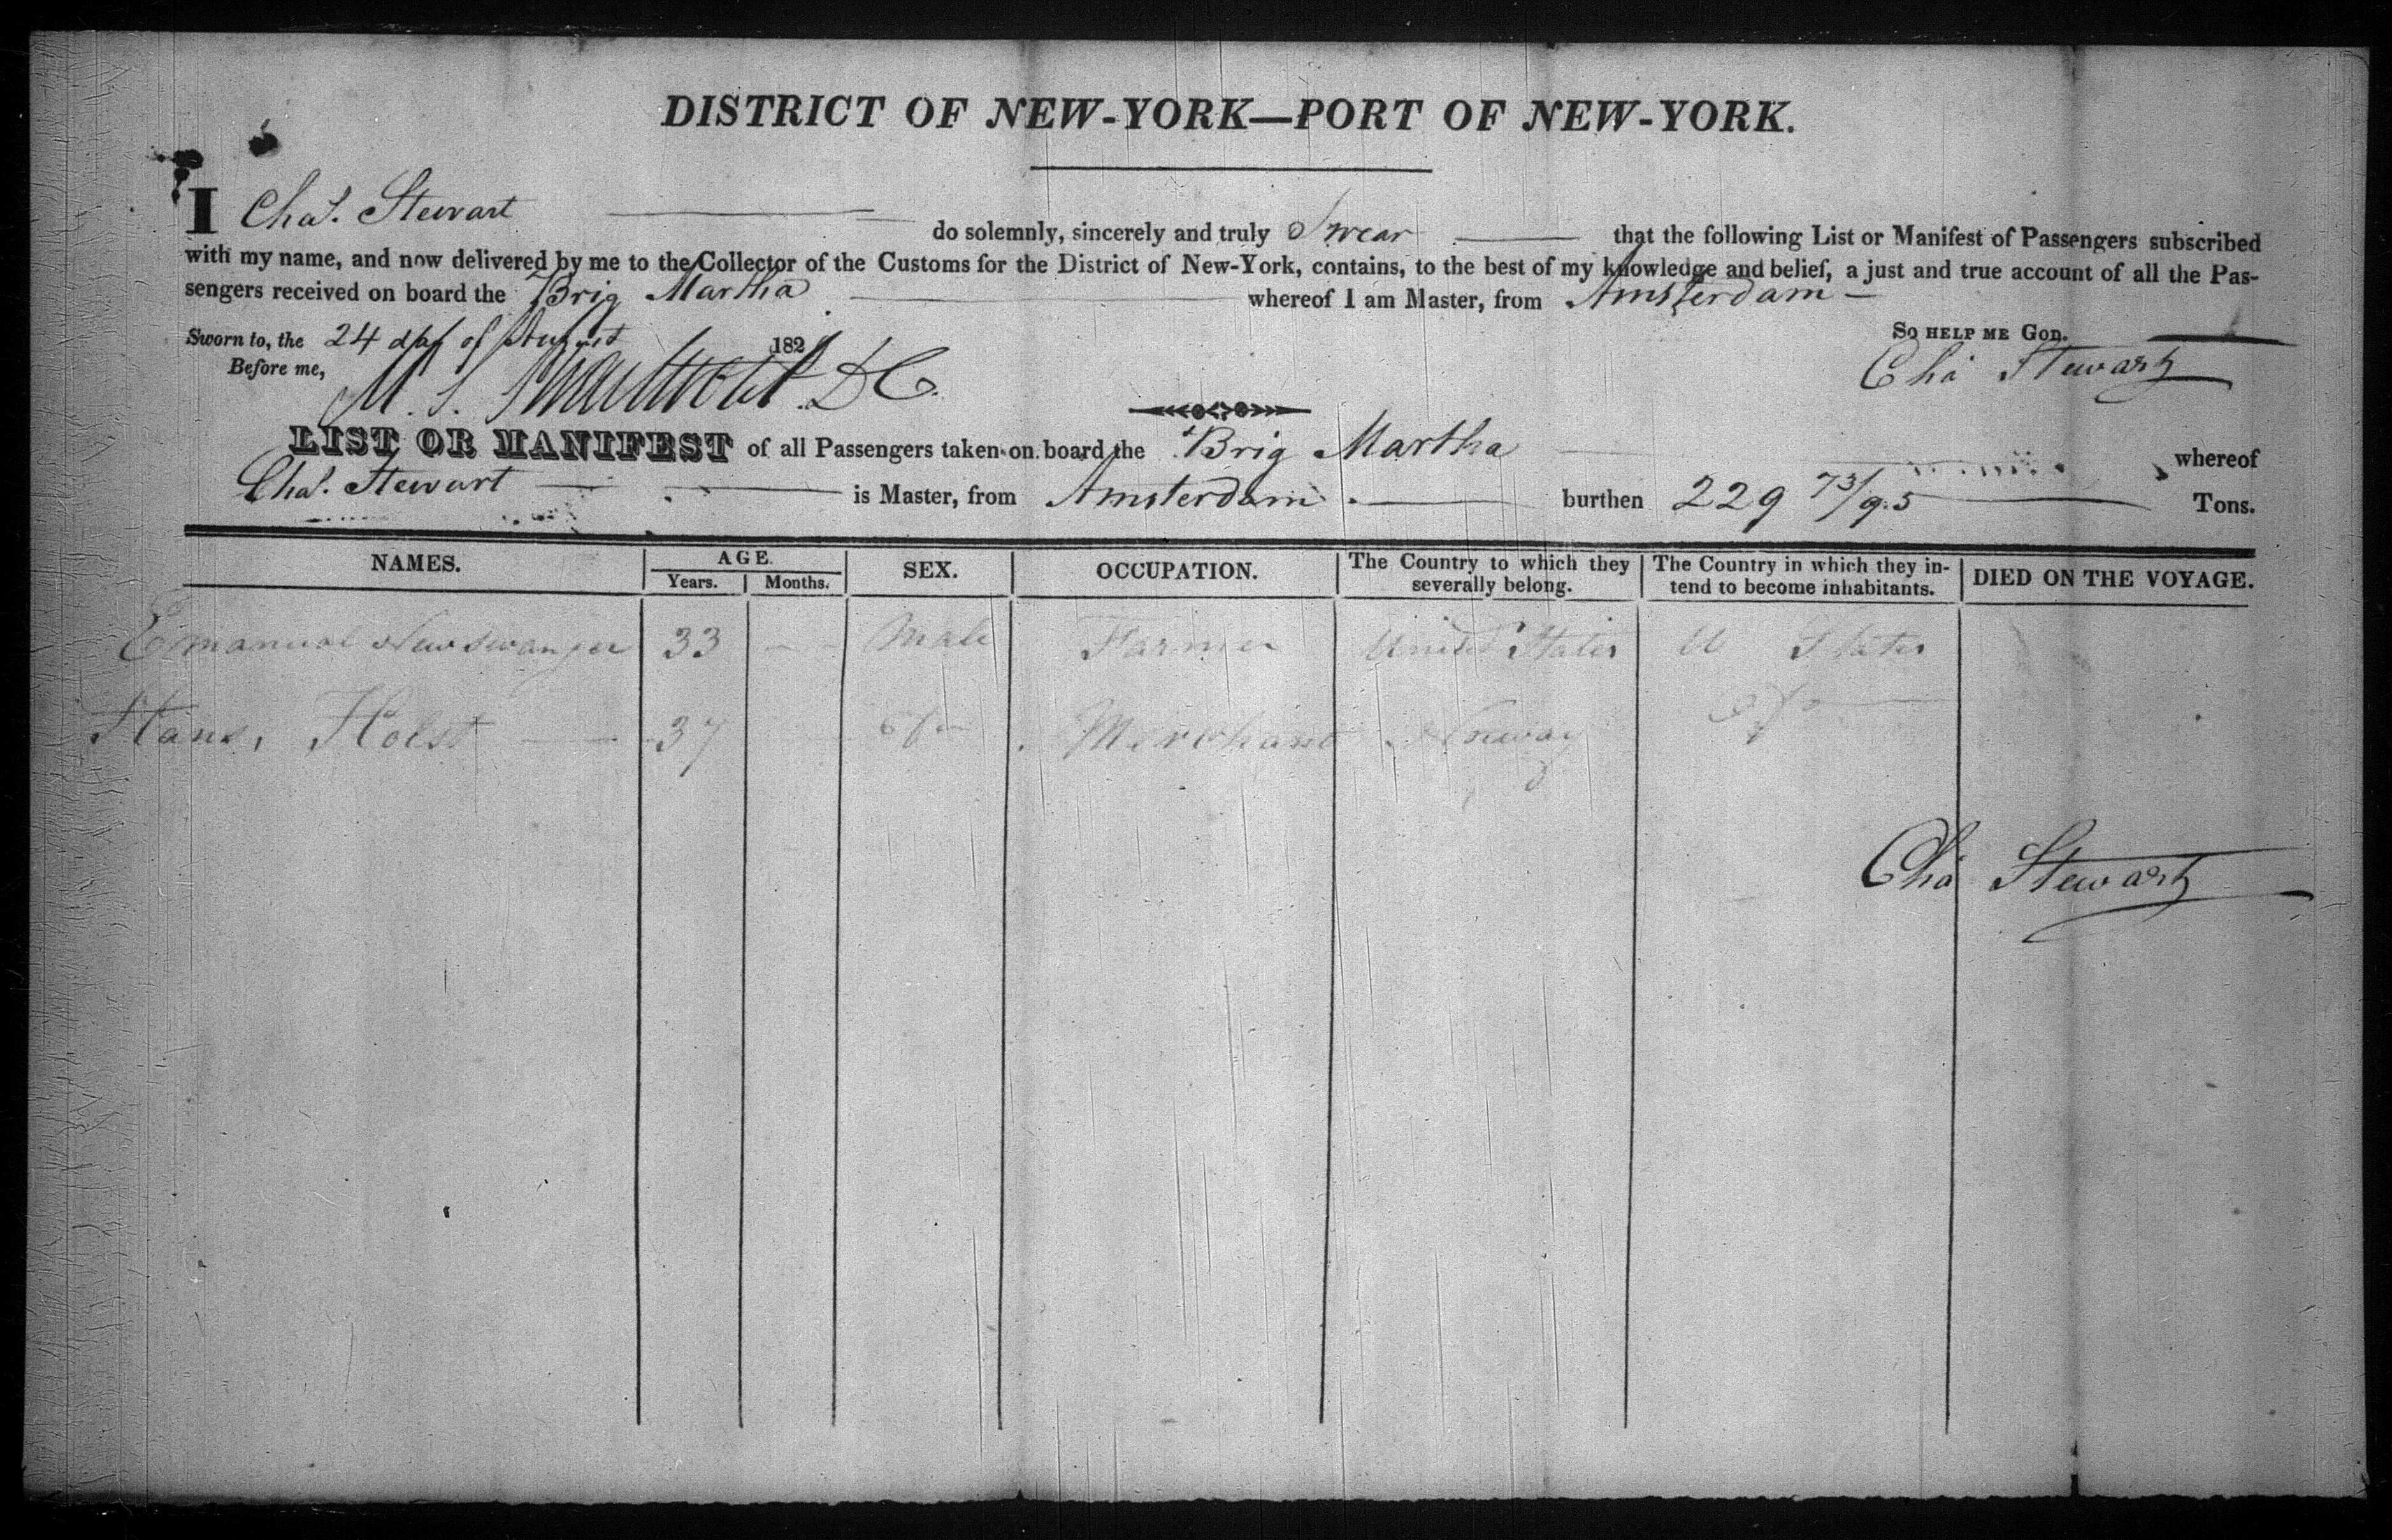 DISTRICT OF NEW-YORK—PORT OF NEW-YORK.
I Chas. Stewart do solemnly, sincerely and truly Swear that the following List or Manifest of Passengers subscribed
with my name, and now delivered by me to the Collector of the Customs for the District of New-York, contains, to the best of my knowledge and belief, a just and true account of all the Pas-
sengers received on board the Brig Martha whereof I am Master, from Amsterdam
Sworn to, the 24 day of August 182 So HELP ME GOD.
Before me, M. S. D C. Chas Stewart
LIST OR MANIFEST of all Passengers taken on board the Brig Martha whereof
Chas. Stewart is Master, from Amsterdam burthen 229 73/95 Tons.
NAMES. AGE. Years. Months. SEX. OCCUPATION. The Country to which they severally belong. The Country in which they in-tend to become inhabitants. DIED ON THE VOYAGE.
Emanual Newswanger 33 Male Farmer United States U States
Hans, Holst 37 do Merchant Norway do
Chas Stewart